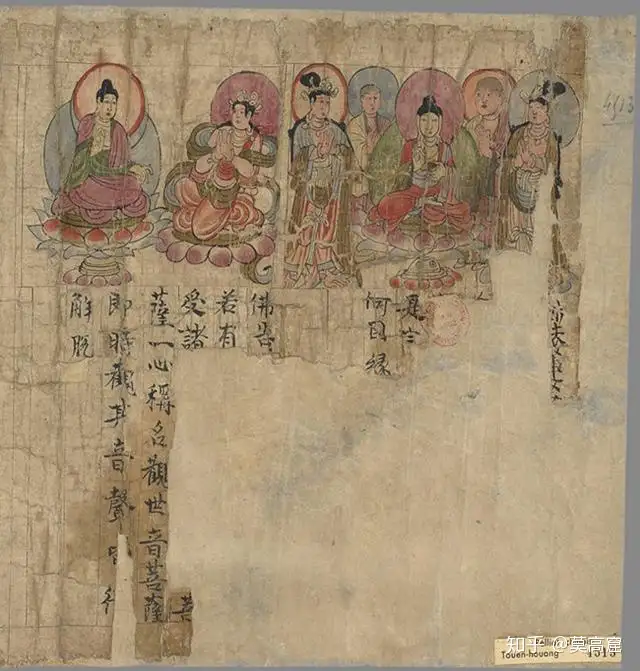 4513
何因緣
佛告
若有
受諸 菩
薩一心稱名觀世音菩薩
即時觀其音聲皆得
解脫
Touen-houang 4513
知乎 @莫高窟